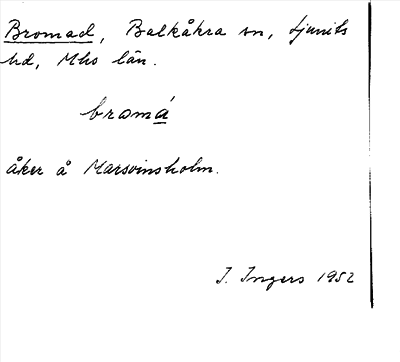 Bromad, Balkåkra sn, Ljunits
hd, Mhs län.
bromá
åker å Marsvinsholm.
I. Ingers 1952